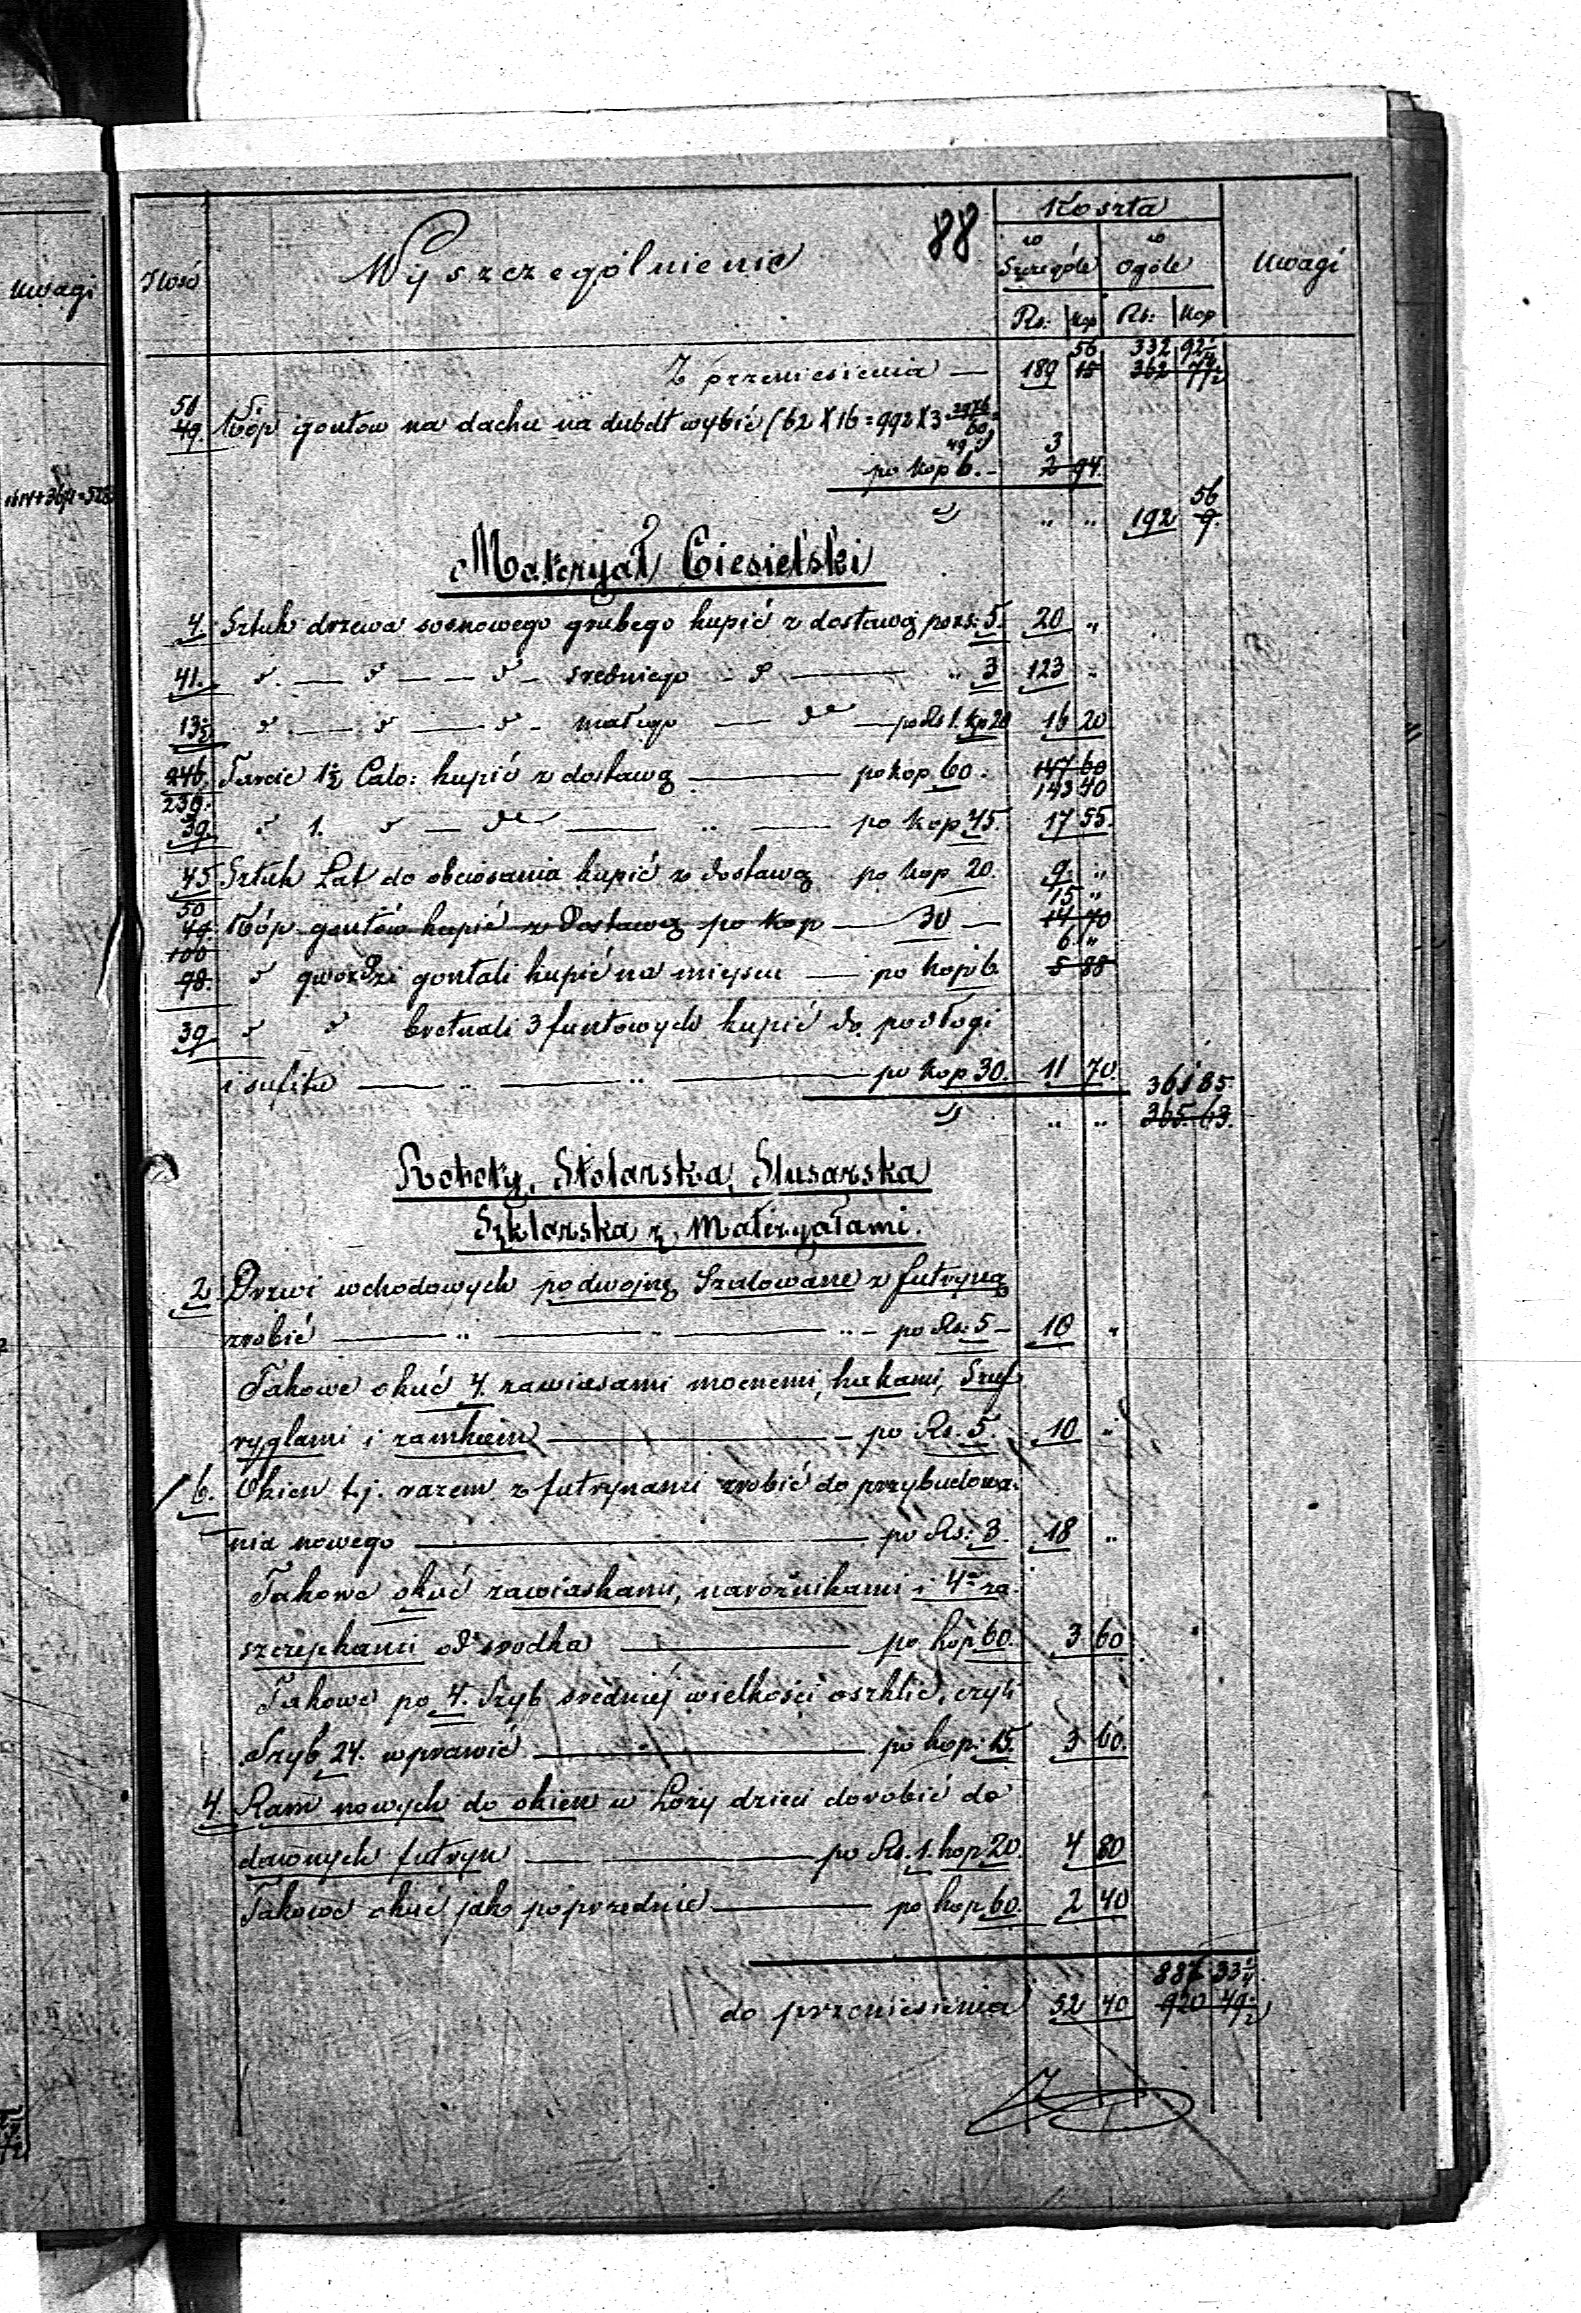 Uwagi
Ilość Wyszczególnienie 88 Koszta Uwagi
w Szczególe w Ogóle
Rs: Kop Rs: Kop
56 332 92
Z przeniesienia — 189 15 362
50
49. Kóp gontów na dachu na dubelt wybić (62 X 16 = 992 X 3 2976
60
49 3
po kop 6. — 2 94.
56
" " 192 9.
Materyał Ciesielski
4. Sztuk drzewa sosnowego grubego kupić z dostawą po rs: 5. 20 "
41. " — " — " — średniego — " — " 3 123 "
13½ " — " — " — małego — po Rs 1. kp 20 16 20
246 Tarcic 1½ Calo: kupić z dostawą — po kop 60. 147 60
239. 143 40
39 " 1. " — " — po kop 45. 17 55.
45 Sztuk Łat do obciosania kupić z dostawą po kop 20. 9. "
50 15 "
49 Kóp gontów kupić z dostawą po kop — 30 — 14 70
100 6 "
98. " gwoździ gontali kupić na miejscu — po kop 6. 5 88
39 " " bretnali 3 funtowych kupić do podłogi
i sufitu — " — " — po kop 30. 11 70. 361 85.
" " 365. 63.
Roboty, Stolarska, Slusarska
Szklarska z Materyałami.
2 Drzwi wchodowych podwojną Szalowane z futryną
zrobić — " — " — " — po Rs: 5 — 10 "
Takowe okuć 4. zawiasami mocnemi, hakami, Szuf
ryglami i zamkiem — po Rs. 5. 10 "
6. Okien t.j. razem z futrynami zrobić do przybudowa-
nia nowego — po Rs: 3. 18 "
Takowe okuć zawiaskami, narożnikami i 4ma za-
szczepkami od srodka — po kop 60. 3 60
Takowe po 4. Szyb średniéj wielkości oszklić, czyli
Szyb 24. wprawić — po kop: 15. 3 60.
4. Ram nowych do okien w Loży dzieci dorobić do
dawnych futryn — po Rs. 1. kop 20. 4 80
Takowe okuć jako poprzednie — po kop 60. 2 40
887 33
do przeniesienia 52 40 920 49